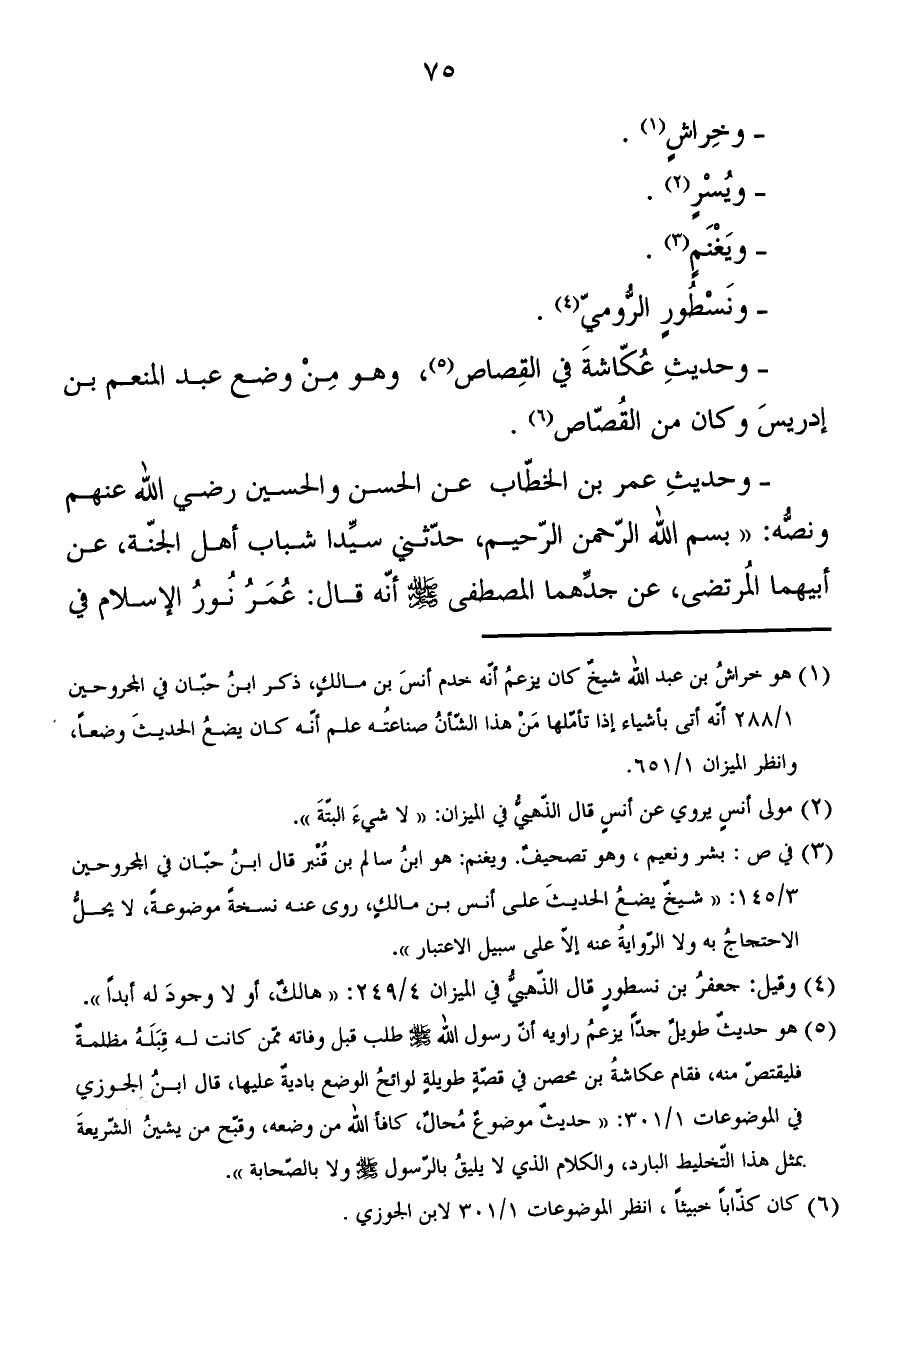 ٧٥
- وخِراشٍ(١) .
- ويُسْرٍ(٢) .
- ويَغْنَمٍ(٣) .
- ونَسْطُورٍ الرُّوميّ(٤) .
- وحديثِ عُكّاشةَ في القِصاص(٥)، وهو مِنْ وضع عبد المنعم بن
إدريسَ وكان من القُصّاص(٦) .
- وحديثِ عمر بن الخطّاب عن الحسن والحسين رضي الله عنهم
ونصُّه: « بسم الله الرّحمن الرّحيم، حدّثني سيِّدا شباب أهل الجنّة، عن
أبيهما المُرتضى، عن جدِّهما المصطفى ﷺ أنّه قال: عُمَرُ نُورُ الإسلام في
(١) هو خراشُ بن عبد الله شيخٌ كان يزعمُ أنّه خدم أنسَ بن مالكٍ، ذكر ابنُ حبّان في المجروحين
٢٨٨/١ أنّه أتى بأشياء إذا تأمّلها مَنْ هذا الشّأنُ صناعتُه علم أنّه كان يضعُ الحديثَ وضعاً،
وانظر الميزان ٦٥١/١.
(٢) مولى أنسٍ يروي عن أنسٍ قال الذّهبيُّ في الميزان: « لا شيءَ البتّةَ ».
(٣) في ص : بشر ونعيم ، وهو تصحيفٌ. ويغنم: هو ابنُ سالم بن قُنْبر قال ابنُ حبّان في المجروحين
١٤٥/٣: « شيخٌ يضعُ الحديثَ على أنس بن مالكٍ، روى عنه نسخةً موضوعةً، لا يحلُّ
الاحتجاجُ به ولا الرّوايةُ عنه إلاّ على سبيل الاعتبار ».
(٤) وقيل: جعفرُ بن نسطورٍ قال الذّهبيُّ في الميزان ٢٤٩/٤: « هالكٌ، أو لا وجودَ له أبداً ».
(٥) هو حديثٌ طويلٌ جدّاً يزعمُ راويه أنّ رسول الله ﷺ طلب قبل وفاته ممّن كانت له قِبَلَهُ مظلمةٌ
فليقتصّ منه، فقام عكاشةُ بن محصن في قصّةٍ طويلةٍ لوائحُ الوضع باديةٌ عليها، قال ابنُ الجوزي
في الموضوعات ٣٠١/١: « حديثٌ موضوعٌ مُحالٌ، كافأ اللهُ من وضعه، وقبّح من يشينُ الشّريعةَ
بمثل هذا التّخليط البارد، والكلام الذي لا يليقُ بالرّسول ﷺ ولا بالصّحابة ».
(٦) كان كذّاباً خبيثاً ، انظر الموضوعات ٣٠١/١ لابن الجوزي .